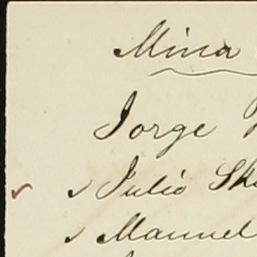 Mina
Jorge
Julio Sk
Manuel